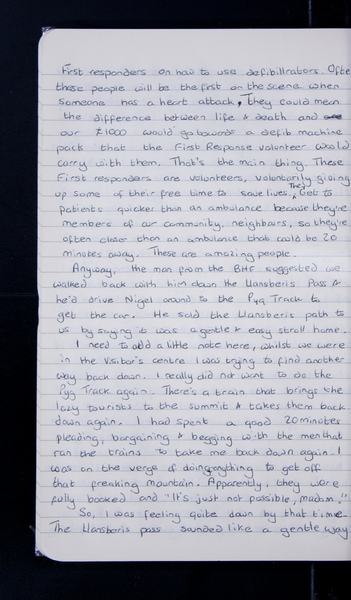 First responders on how to use defibillrators. Ofte
these people will be the first on the scene when
someone has a heart attack, They could mean
the difference between life & death and
our £1000 would go towards a defib machine
pack that the First Response volunteer would
carry with them. That's the main thing. These
First responders are volunteers, voluntarily giving
up some of their free time to save lives. They Get to
patients quicker than an ambulance because they're
members of our community, neighbours, so they're
often closer than an ambulance that could be 20
minutes away. These are amazing people.
Anyway, the man from the BHF suggested we
walked back with him down the Llanberis Pass &
he'd drive Nigel around to the Pyg Track to
get the car. He sold the Llanberis path to
us by saying it was a gentle & easy stroll home.
I need to add a little note here, whilst we were
in the visitor's centre I was trying to find another
way back down. I really did not want to do the
Pyg Track again. There's a train that brings the
lazy tourists to the summit & takes them back
down again. I had spent a good 20 minutes
pleading, bargaining & begging with the men that
ran the trains to take me back down again. I
was on the verge of doing anything to get off
that freaking mountain. Apparently, they were
fully booked and "It's just not possible, madam."
So, I was feeling quite down by that time.
The Llanberis pass sounded like a gentle way